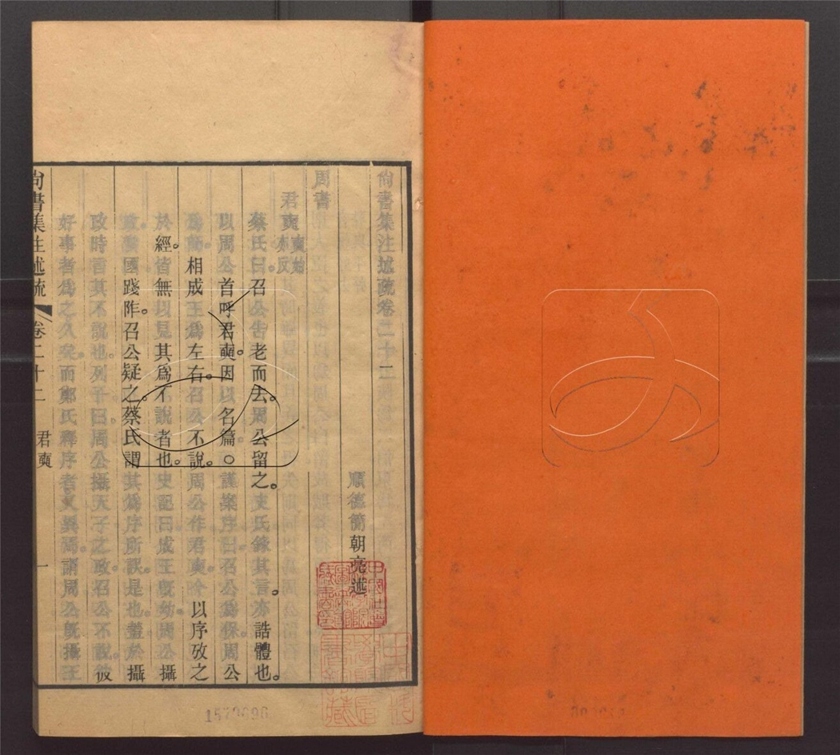 尚書集注述疏卷二十二
順德簡朝亮述
周書
君奭
蔡氏曰召公告老而去周公留之。史氏錄其言亦誥體也。
以周公首呼君奭。因以名篇。○謹案序曰召公爲保周公
爲師。相成王爲左右。召公不說。周公作君奭今以序攷之
於經。皆無以見其爲不說者也。史記曰成王旣幼周公攝
國踐阼。召公疑之蔡氏謂其爲序所誤。是也。於攝
政時言其不說也列子曰周公攝天子之政。召公不說彼
好事者爲之久矣。而鄭氏釋序者又異焉。謂周公旣攝王
尚書集注述疏 卷二十二 君奭 一
1570696